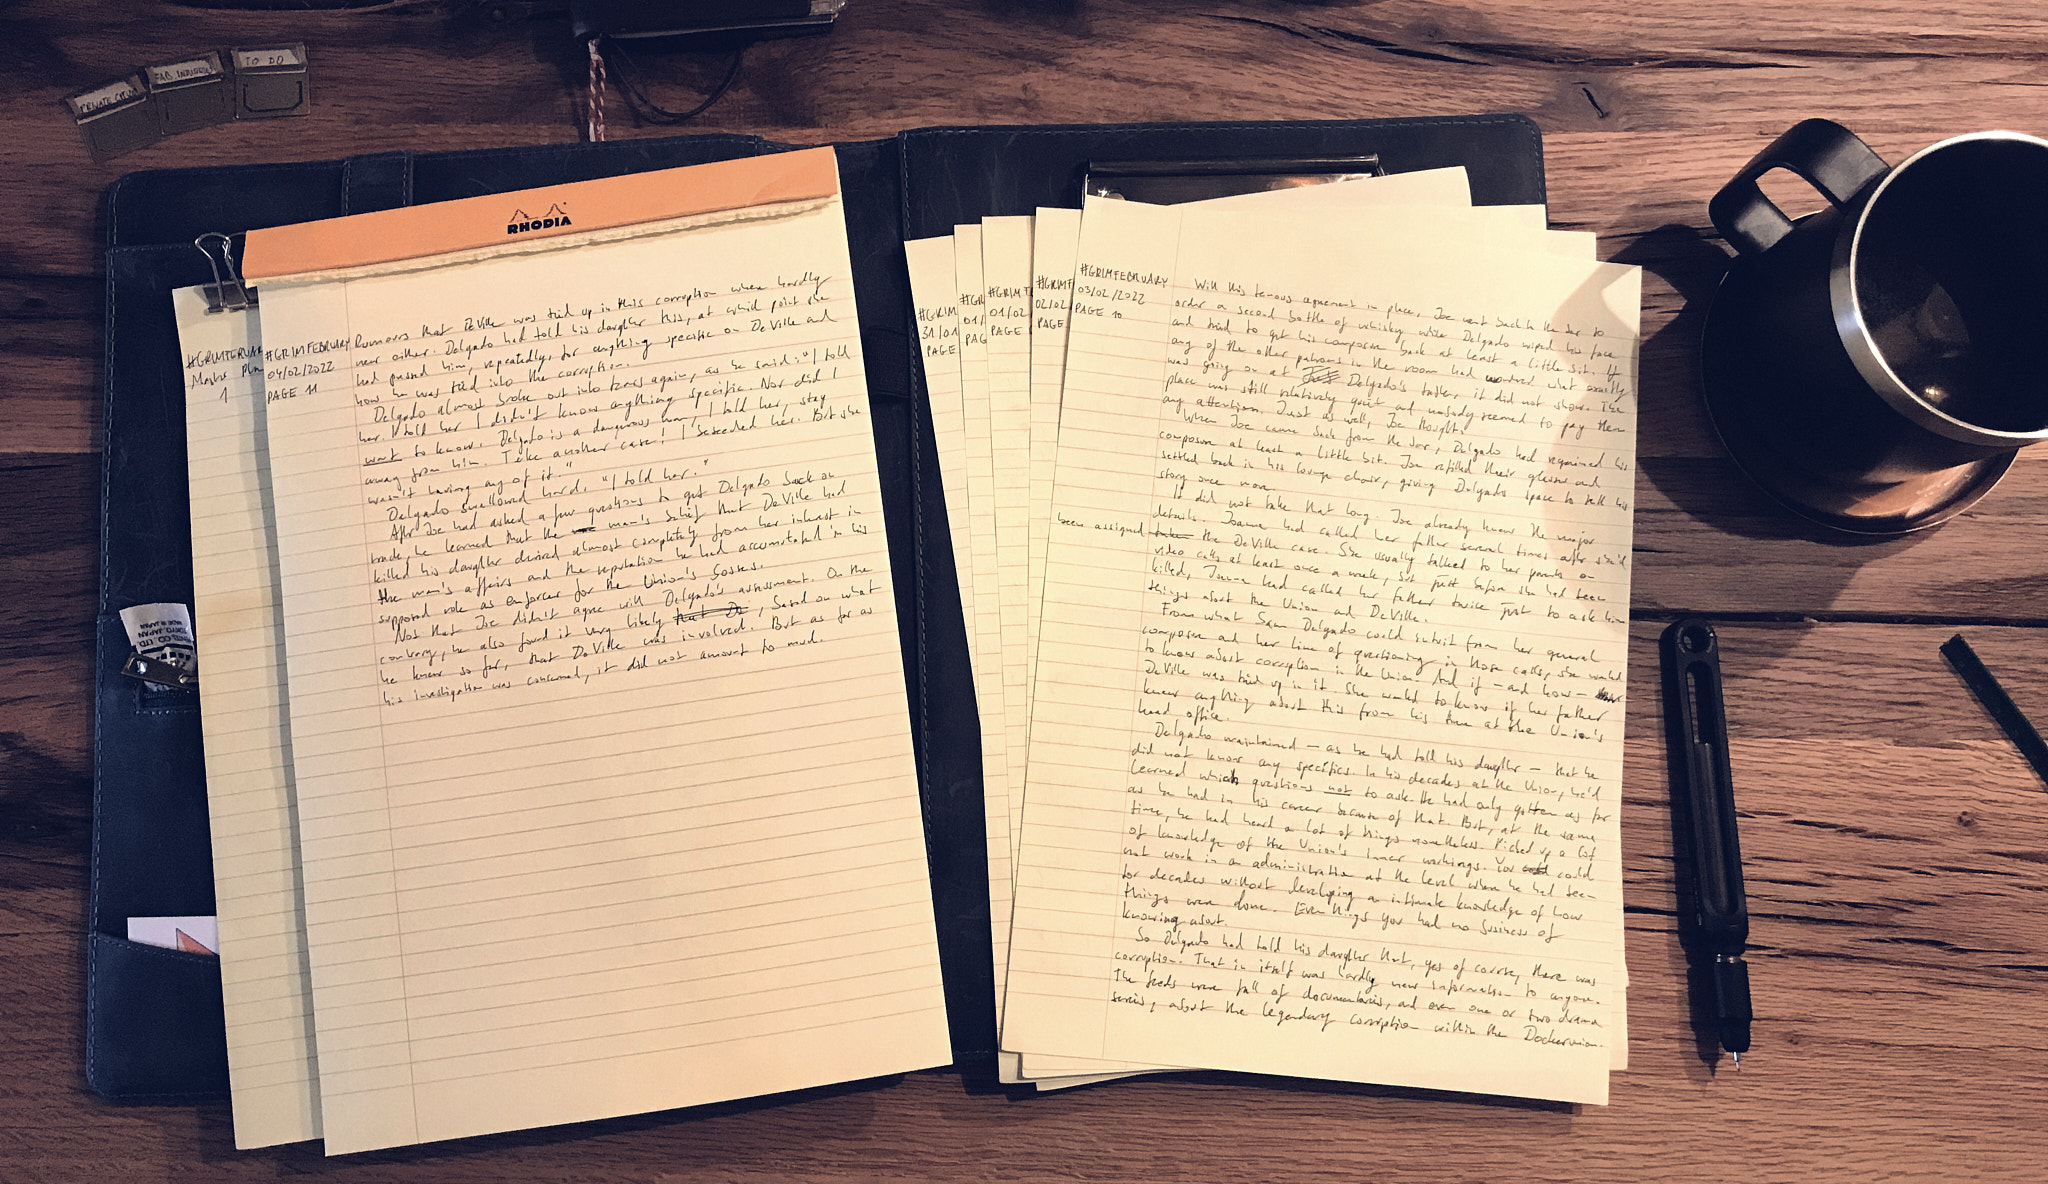 PRIVATE
FAB. INDUSTRIES
TO DO
RHODIA
#GRIMFEBRUAR
1
#GRIMFEBRUARY
04/02/2022
PAGE 11
Rumours that DeVille was tied up in this corruption were hardly
new either. Delgado had told his daughter this, at which point she
had pushed him, repeatedly, for anything specific on DeVille and
how he was tied into the corruption.
Delgado almost broke out into tears again, as he said: "I told
her. I told her I didn't know anything specific. Nor did I
want to know. Delgado is a dangerous man, I told her, stay
away from him. Take another case! I beseeched her. But she
wasn't having any of it."
Delgado swallowed hard. "I told her."
After Joe had asked a few questions to get Delgado back on
track, he learned that the man's belief that DeVille had
killed his daughter derived almost completely from her interest in
the man's affairs and the reputation he had accumulated in his
supposed role as enforcer for the Union's bosses.
Not that Joe didn't agree with Delgado's assessment. On the
contrary, he also found it very likely that De, based on what
he knew so far, that DeVille was involved. But as far as
his investigation was concerned, it did not amount to much.
MADE IN JAPAN
TOKYO, JAPAN
CO., LTD.
#GRIM
31/01
PAGE
#GR
01/
PAG
#GRIMF
01/02
PAGE
#GRIM
02/02
PAGE
#GRIMFEBRUARY
03/02/2022
PAGE 10
With this tenous agreement in place, Joe went back to the bar to
order a second bottle of whisky while Delgado wiped his face
and tried to get his composure back at least a little bit. If
any of the other patrons in the room had wondered what exactly
was going on at Delgado's table, it did not show. The
place was still relatively quiet and nobody seemed to pay them
any attention. Just as well, Joe thought.
When Joe came back from the bar, Delgado had regained his
composure at least a little bit. Joe refilled their glasses and
settled back in his lounge chair, giving Delgado space to tell his
story once more.
It did not take that long. Joe already knew the major
details. Joanna had called her father several times after she'd
been assigned the DeVille case. She usually talked to her parents on
video calls at least once a week, but just before she had been
killed, Joanna had called her father twice just to ask him
things about the Union and DeVille.
From what Sam Delgado could intuit from her general
composure and her line of questioning in those calls, she wanted
to know about corruption in the Union. And if — and how —
DeVille was tied up in it. She wanted to know if her father
knew anything about this from his time at the Union's
head office.
Delgado maintained — as he had told his daughter — that he
did not know any specifics. In his decades at the Union, he'd
learned which questions not to ask. He had only gotten as far
as he had in his career because of that. But, at the same
time, he had heard a lot of things nonetheless. Picked up a lot
of knowledge of the Union's inner workings. You could
not work in an administration at the level where he had been
for decades without developing an intimate knowledge of how
things were done. Even things you had no business of
knowing about.
So Delgado had told his daughter that, yes of course, there was
corruption. That in itself was hardly new information to anyone.
The feeds were full of documentaries, and even one or two drama
series, about the legendary corruption within the Dockerunion.